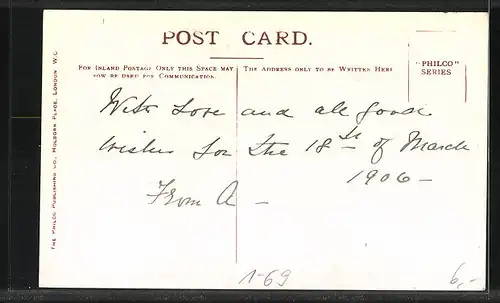 POST CARD.
"PHILCO"
SERIES
FOR INLAND POSTAGE ONLY THIS SPACE MAY
NOW BE USED FOR COMMUNICATION.
THE ADDRESS ONLY TO BE WRITTEN HERE
THE PHILCO PUBLISHING CO., HOLBORN PLACE, LONDON W.C.
With Love and all good
wishes for the 18th of March
1906 –
From A –
1-69
6,-